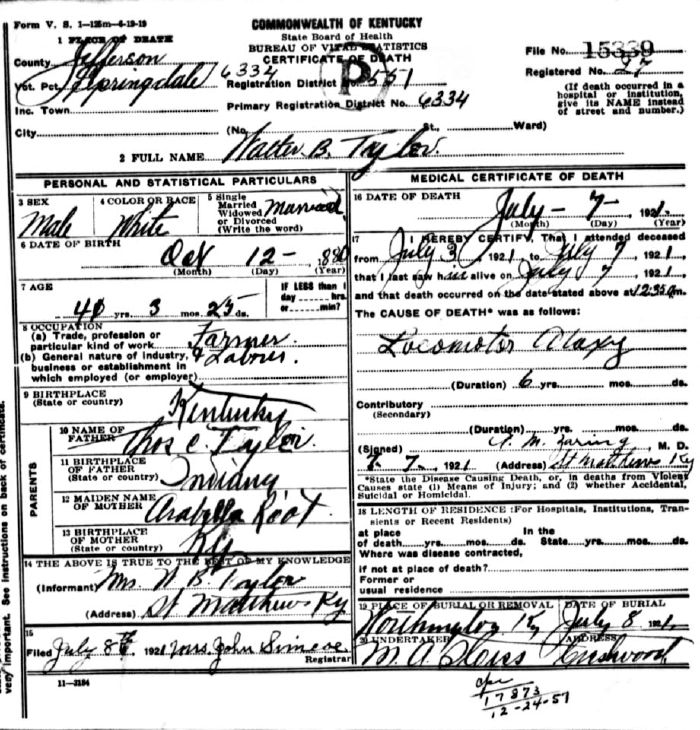 Form V. S. 1-125m-6-19-19
COMMONWEALTH OF KENTUCKY
State Board of Health
BUREAU OF VITAL STATISTICS
CERTIFICATE OF DEATH
1 PLACE OF DEATH
County Jefferson
Vot. Pct. Springdale 6334
Inc. Town
City
File No. 15339
Registered No. 27
(If death occurred in a hospital or institution, give its NAME instead of street and number.)
Registration District No. 551
P
Primary Registration District No. 6334
(No. St., Ward)
2 FULL NAME Walter B. Taylor
PERSONAL AND STATISTICAL PARTICULARS
3 SEX
Male
4 COLOR OR RACE
White
5 Single
Married
Widowed
or Divorced
(Write the word)
Married
6 DATE OF BIRTH
Oct 12 - 1880
(Month) (Day) (Year)
7 AGE
40 yrs. 3 mos. 25 ds.
IF LESS than 1
day hrs.
or min.?
8 OCCUPATION
(a) Trade, profession or
particular kind of work Farmer
(b) General nature of industry,
business or establishment in
which employed (or employer)
& Labour.
9 BIRTHPLACE
(State or country) Kentucky
PARENTS
10 NAME OF
FATHER Thos C. Taylor
11 BIRTHPLACE
OF FATHER
(State or country) Indiany
12 MAIDEN NAME
OF MOTHER Arabella Root
13 BIRTHPLACE
OF MOTHER
(State or country) Ky
14 THE ABOVE IS TRUE TO THE BEST OF MY KNOWLEDGE
(Informant) Mrs. W B Taylor
(Address) St Matthews Ky
15
Filed July 8th 1921 Mrs John Simcoe
Registrar
11-3184
MEDICAL CERTIFICATE OF DEATH
16 DATE OF DEATH
July - 7 - , 1921
(Month) (Day) (Year)
17 I HEREBY CERTIFY, That I attended deceased
from July 3, 1921 to July 7, 1921
that I last saw him alive on July 7, 1921,
and that death occurred on the date stated above at 12:35 a m.
The CAUSE OF DEATH* was as follows:
Locomotor Ataxy
(Duration) 6 yrs. mos. ds.
Contributory
(Secondary)
(Duration) yrs. mos. ds.
(Signed) M. Zaring, M. D.
7-7-, 1921 (Address) St Matthews Ky
*State the Disease Causing Death, or, in deaths from Violent
Causes state (1) Means of Injury; and (2) whether Accidental,
Suicidal or Homicidal.
18 LENGTH OF RESIDENCE (For Hospitals, Institutions, Tran-
sients or Recent Residents)
at place In the
of death yrs. mos. ds. State yrs. mos. ds.
Where was disease contracted,
if not at place of death?
Former or
usual residence
19 PLACE OF BURIAL OR REMOVAL DATE OF BURIAL
Worthington Ky July 8 1921
20 UNDERTAKER ADDRESS
M. A.
17873
12-24-57
very important. See instructions on back of certificate.